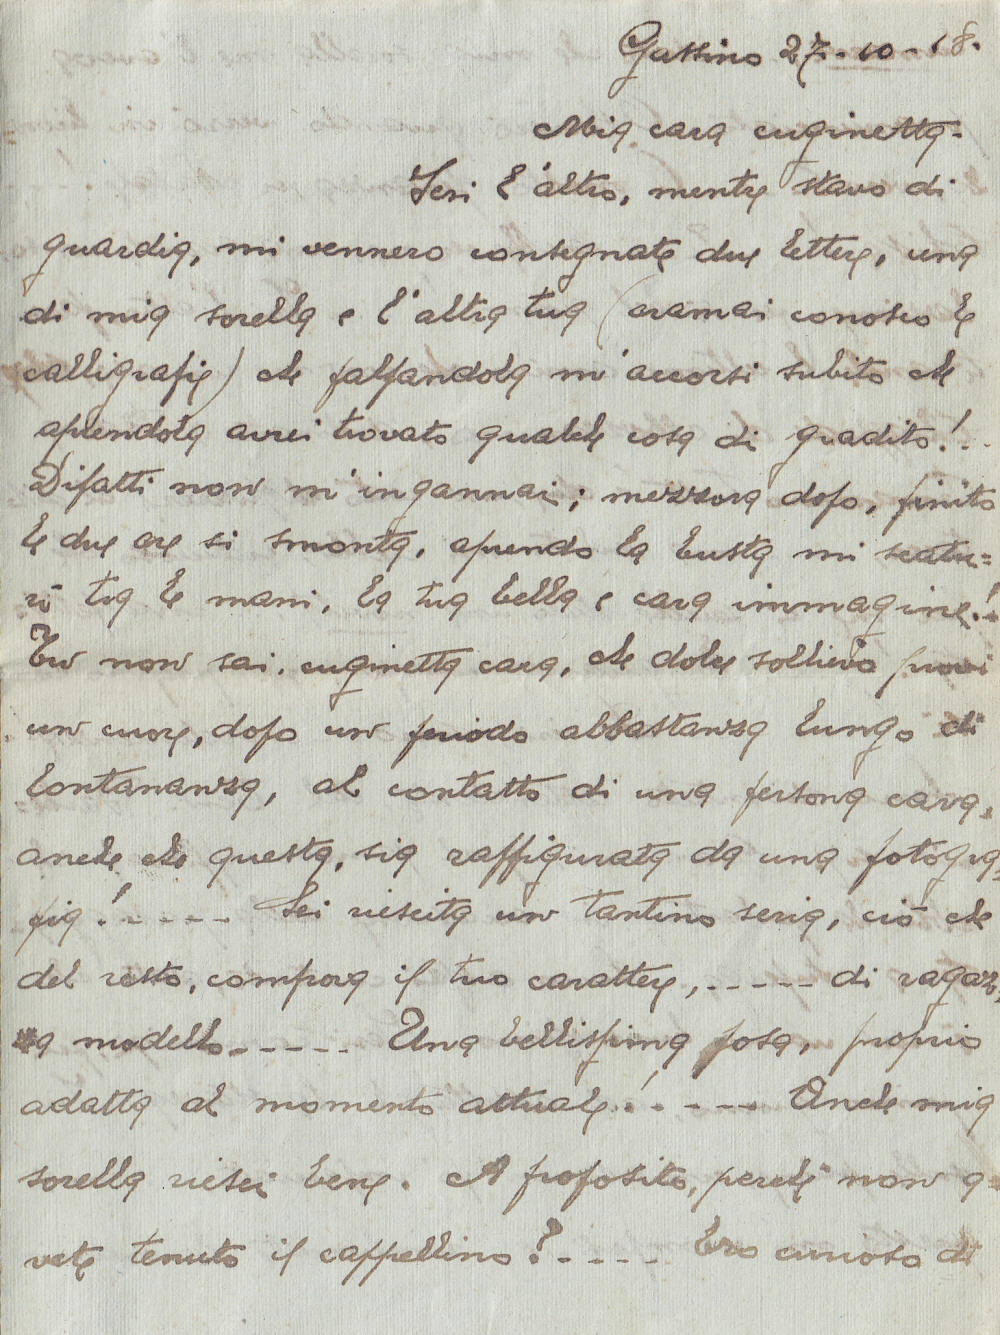 Gassino 27-10-18.
Mia cara cuginetta-
Ieri l'altro, mentre stavo di
guardia, mi vennero consegnate due lettere, una
di mia sorella e l'altra tua (oramai conosco le
calligrafie) che palpandola m'accorsi subito che
aprendola avrei trovato qualche cosa di gradito!..
Difatti non m'ingannai; mezzora dopo, finito
le due ore si smonta, aprendo la busta mi scatu=
rì tra le mani, la tua bella e cara immagine!..
Tu non sai, cuginetta cara, che dolce sollievo provi
un cuore, dopo un periodo abbastanza lungo di
lontananza, al contatto di una persona cara,
anche che questa, sia raffigurata da una fotogra
fia!----- Sei riescita un tantino seria, ciò che
del resto, comprova il tuo carattere,----- di ragaz,
za modello----- Una bellissima posa, proprio
adatta al momento attuale!----- Anche mia
sorella riescì bene. A proposito, perchè non a
vete tenuto il cappellino?---- Ero curioso di